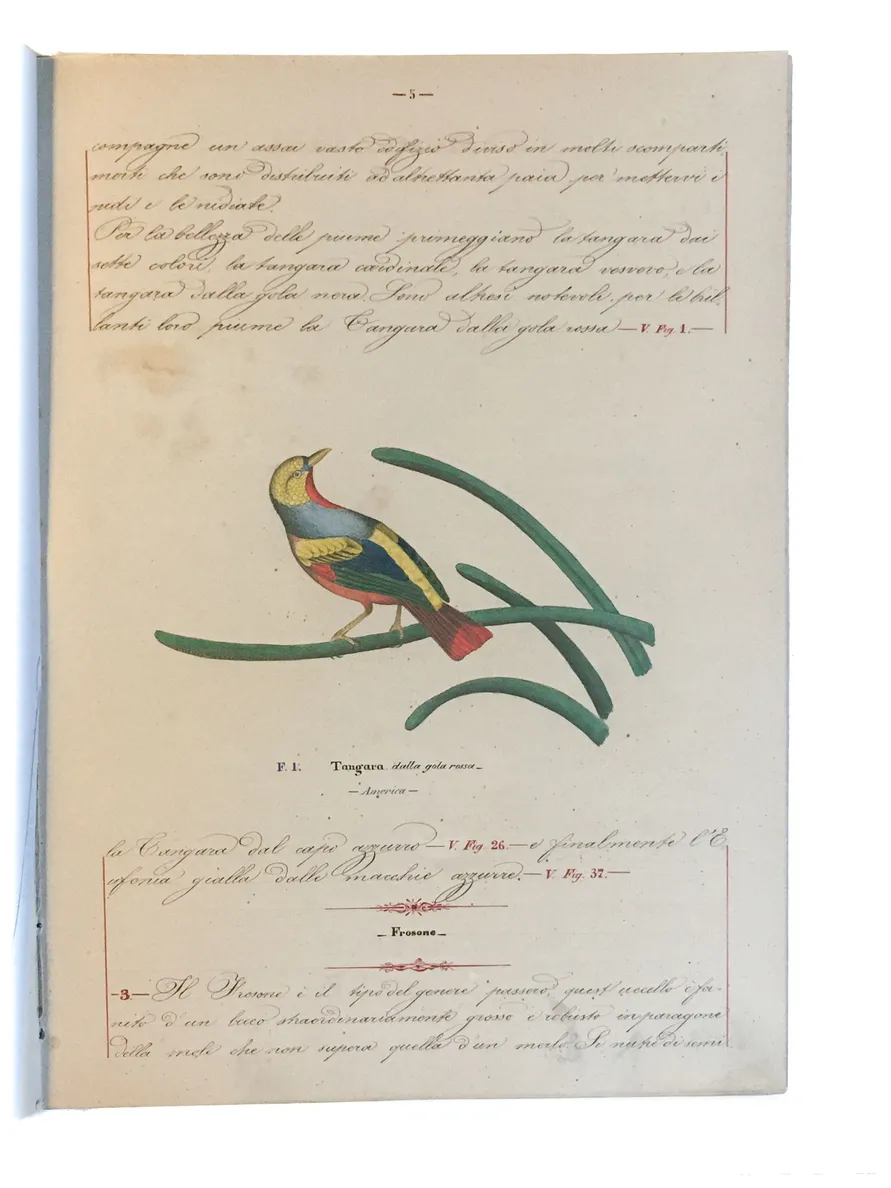 — 5 —
compagne un assai vasto edifizio diviso in molti scomparti,
menti che sono distribuiti ad altrettanta paia per mettervi i
nidi e le nidiate.
Per la bellezza delle piume primeggiano la tangara dai
sette colori, la tangara cardinale, la tangara vescovo, e la
tangara dalla gola nera. Sono altresì notevoli per le bril-
lanti loro piume la Tangara dalla gola rossa — V. Fig. 1. —
F. 1. Tangara dalla gola rossa —
— America —
la Tangara dal capo azzurro — V. Fig. 26. — e finalmente l'E
ufonia gialla dalle macchie azzurre. — V. Fig. 37. —
— Frosone —
- 3. — Il Frosone è il tipo del genere passero, quest'uccello è for-
nito d'un becco straordinariamente grosso e robusto in paragone
della mole che non supera quella d'un merlo. Si nutre di semi